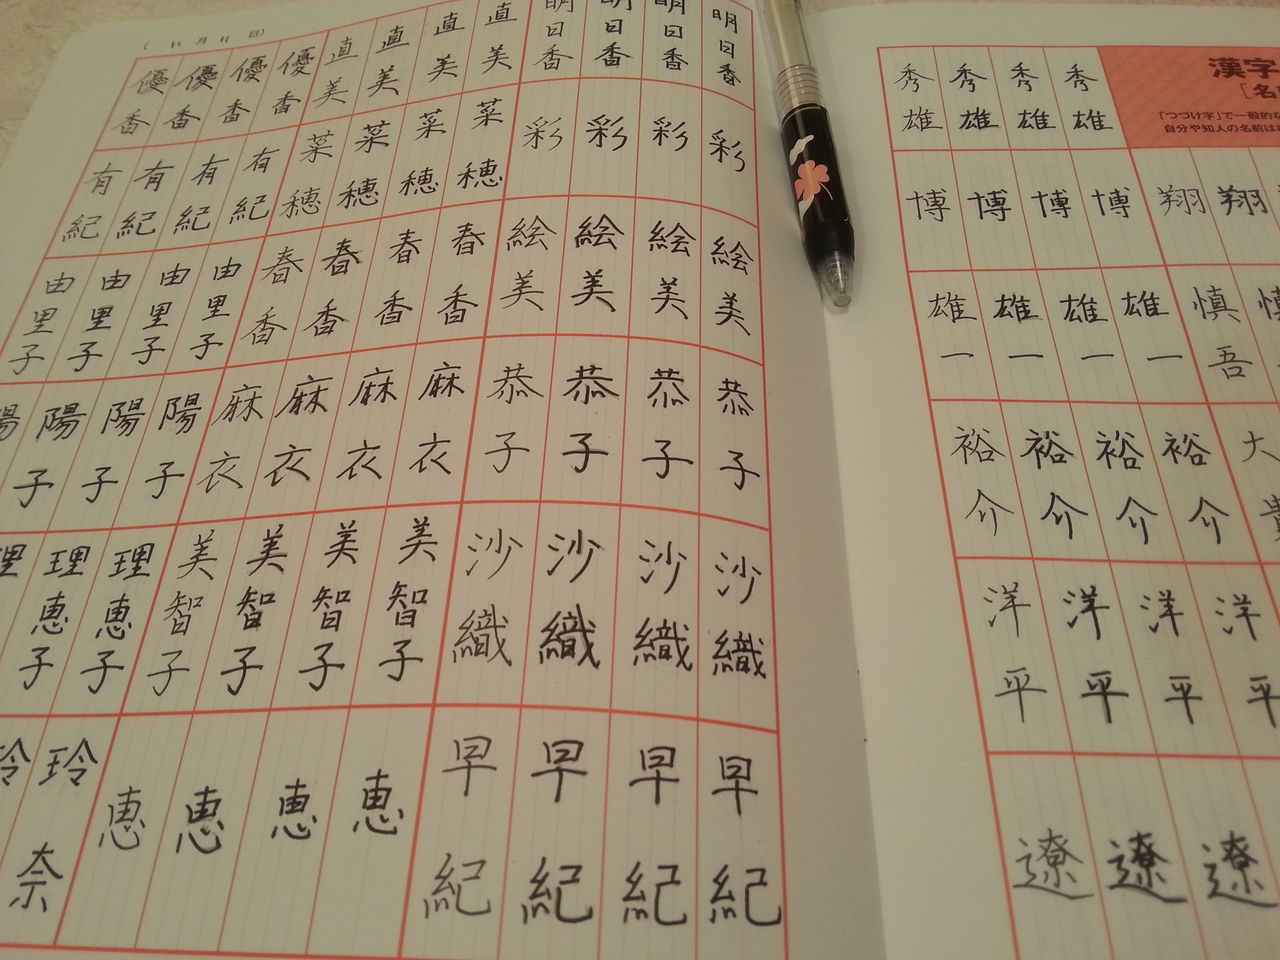 漢字
［名
「つづけ字」で一般的な
自分や知人の名前は
秀雄 秀雄 秀雄 秀雄
翔 翔 博 博 博 博
慎吾 雄一 雄一 雄一 雄一
大 裕介 裕介 裕介 裕介
洋平 洋平 洋平 洋平
遼 遼 遼
（ 11月11日）
明日香 明日香 明日香 明日香 直美 直美 直美 直美 優香 優香 優香 優香
彩 彩 彩 彩 菜穂 菜穂 菜穂 菜穂 有紀 有紀 有紀 有紀
絵美 絵美 絵美 絵美 春香 春香 春香 春香 由里子 由里子 由里子 由里子
恭子 恭子 恭子 恭子 麻衣 麻衣 麻衣 麻衣 陽子 陽子 陽子
沙織 沙織 沙織 沙織 美智子 美智子 美智子 美智子 理恵子 理恵子
早紀 早紀 早紀 早紀 恵 恵 恵 恵 玲奈